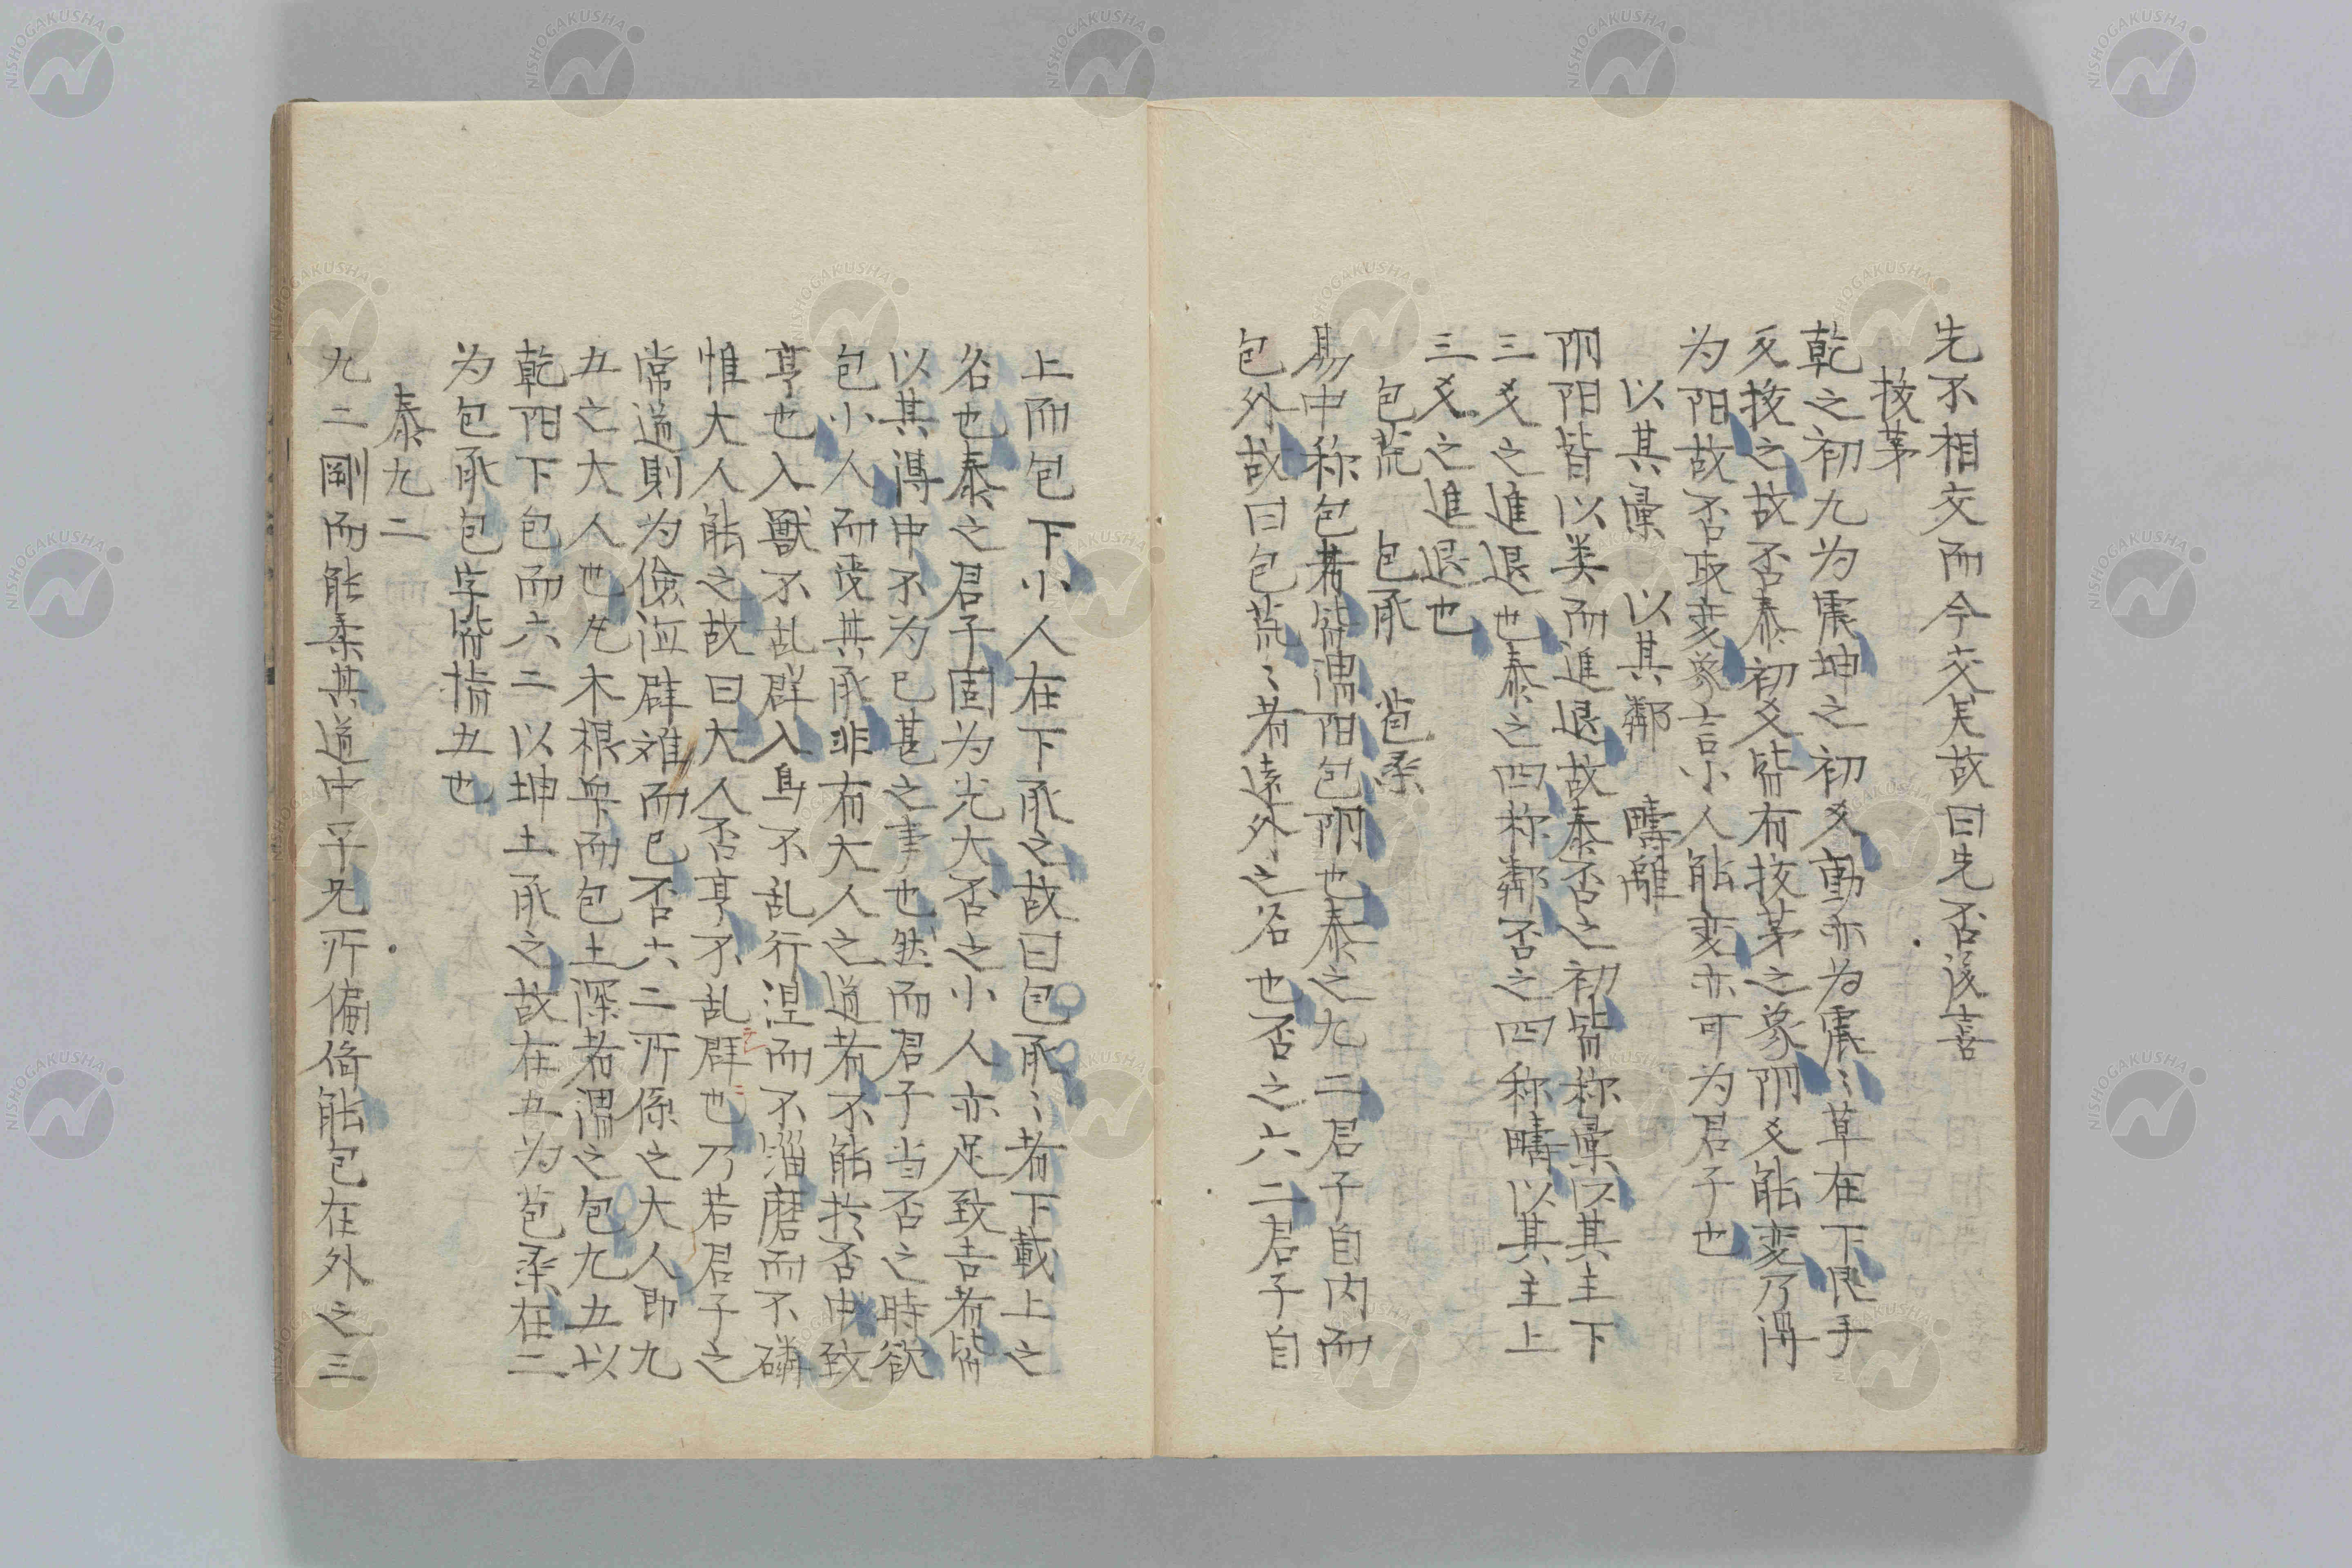 先不相交而今交矣故曰先否後喜
拔茅
乾之初九为震坤之初爻動亦为震〻草在下艮手
爻拔之故否泰初爻皆有拔茅之象阴爻能变乃得
为阳故否取变象言小人能变亦可为君子也
以其彙　以其鄰　疇離
阴阳皆以类而進退故泰否之初皆称彙以其主下
三爻之進退也泰之四称鄰否之四称疇以其主上
三爻之進退也
包荒　包承　苞桑
易中称包者皆謂阳包阴也泰之九二君子自内而
包外故曰包荒〻者遠外之名也否之六二君子自
上而包下小人在下承之故曰包承〻者下載上之
名也泰之君子固为光大否之小人亦足致吉者皆
以其得中不为已甚之事也然而君子当否之時欲
包小人而受其承非有大人之道者不能於否中致
亨也入獸不乱群入鳥不乱行涅而不淄磨而不磷
惟大人能之故曰大人否亨不乱群也乃若君子之
常道則为儉德辟难而已否六二所係之大人即九
五之大人也凡木根舉而包土深者謂之包九五以
乾阳下包而六二以坤土承之故在五为苞桑在二
为包承包字皆指五也
泰九二
九二剛而能柔其道中平无所偏倚能包在外之三